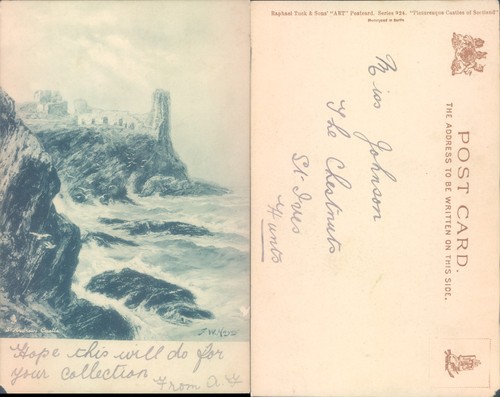 St Andrews Castle
Hope this will do for
your collection
From A F
Raphael Tuck & Sons' "ART" Postcard. Series 824. "Picturesque Castles of Scotland"
POST CARD.
THE ADDRESS TO BE WRITTEN ON THIS SIDE.
Miss Johnson
The Chestnuts
St Ives
Hunts